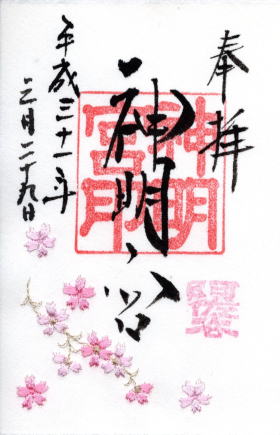 奉拝
神明宮
平成三十一年
三月二十九日
神明
宮印